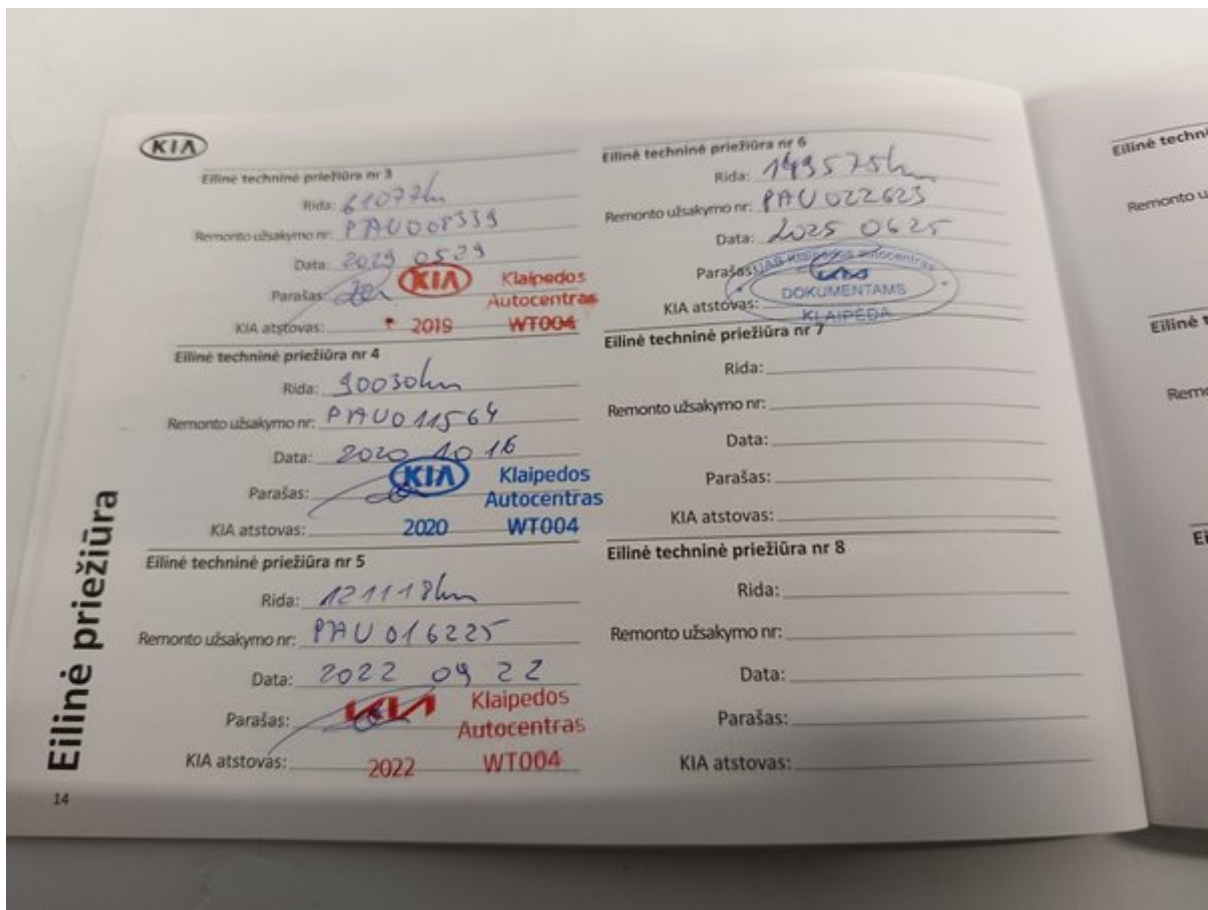 KIA
Eilinė techninė priežiūra nr 3
Rida: 61077km
Remonto užsakymo nr: PAU008339
Data: 2029 0529
Parašas: KIA Klaipedos
Autocentras
KIA atstovas: 2019 WT004
Eilinė techninė priežiūra nr 4
Rida: 90030km
Remonto užsakymo nr: PAU011564
Data: 2020 10 16
Parašas: KIA Klaipedos
Autocentras
KIA atstovas: 2020 WT004
Eilinė techninė priežiūra nr 5
Rida: 121118km
Remonto užsakymo nr: PAU016225
Data: 2022 09 22
Parašas: KIA Klaipedos
Autocentras
KIA atstovas: 2022 WT004
Eilinė priežiūra
14
Eilinė techninė priežiūra nr 6
Rida: 149575km
Remonto užsakymo nr: PAU022623
Data: 2025 0625
Parašas: UAB Klaipėdos autocentras
DOKUMENTAMS
KIA atstovas: KLAIPĖDA
Eilinė techninė priežiūra nr 7
Rida:
Remonto užsakymo nr:
Data:
Parašas:
KIA atstovas:
Eilinė techninė priežiūra nr 8
Rida:
Remonto užsakymo nr:
Data:
Parašas:
KIA atstovas:
Eilinė techni
Remonto u
Eilinė t
Remo
Ei